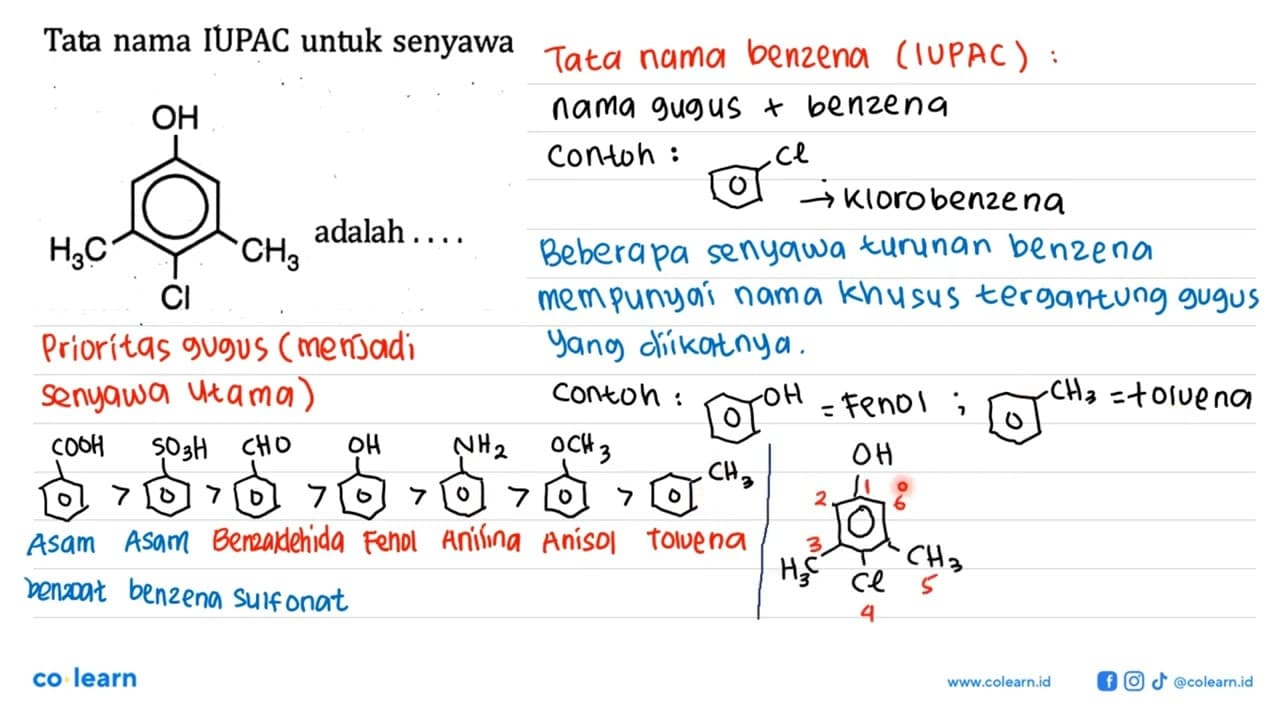 Tata nama IUPAC untuk senyawa
OH
H3C
CH3
Cl
adalah ....
Tata nama benzena (IUPAC) :
nama gugus + benzena
Contoh :
Cl
→ Klorobenzena
Beberapa senyawa turunan benzena
mempunyai nama khusus tergantung gugus
yang diikatnya.
Contoh :
OH
= Fenol ;
CH3
= toluena
Prioritas gugus (menjadi
senyawa utama)
COOH SO3H CHO OH NH2 OCH3 CH3
> > > > > >
Asam Asam Benzaldehida Fenol Anilina Anisol toluena
benzoat benzena sulfonat
OH
1
2
6
3
H3C
CH3
Cl
5
4
co learn
www.colearn.id
@colearn.id